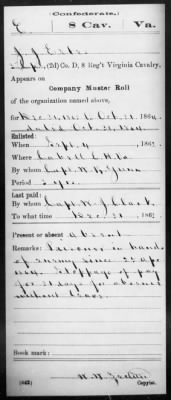 Confederate.
E 8 Cav. Va.
J. J.
(2d) Co. D, 8 Reg't Virginia Cavalry.
Appears on
Company Muster Roll
of the organization named above,
for Oct. 31, 1864.
dated Oct. 31, 1864.
Enlisted:
When Sept. 4, 186
Where Cabell C. H. Va.
By whom Capt.
Period 3 yrs.
Last paid:
By whom Capt. Clark
To what time Dec. 31, 186
Present or absent Absent
Remarks: Prisoner in hands
of enemy since 22 Apr
1864. Stoppage of pay
for 21 days for absence
without leave.
Book mark:
(642) Copyist.